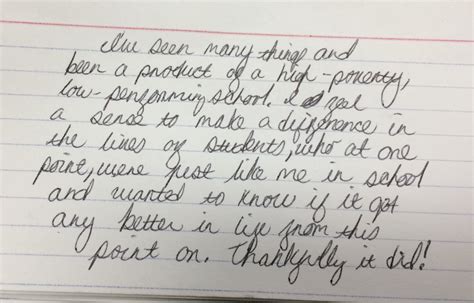 I've seen many things and
been a product of a high-poverty,
low-performing school. I feel
a sense to make a difference in
the lives of students, who at one
point, were just like me in school
and wanted to know if it got
any better in life from this
point on. Thankfully it did!